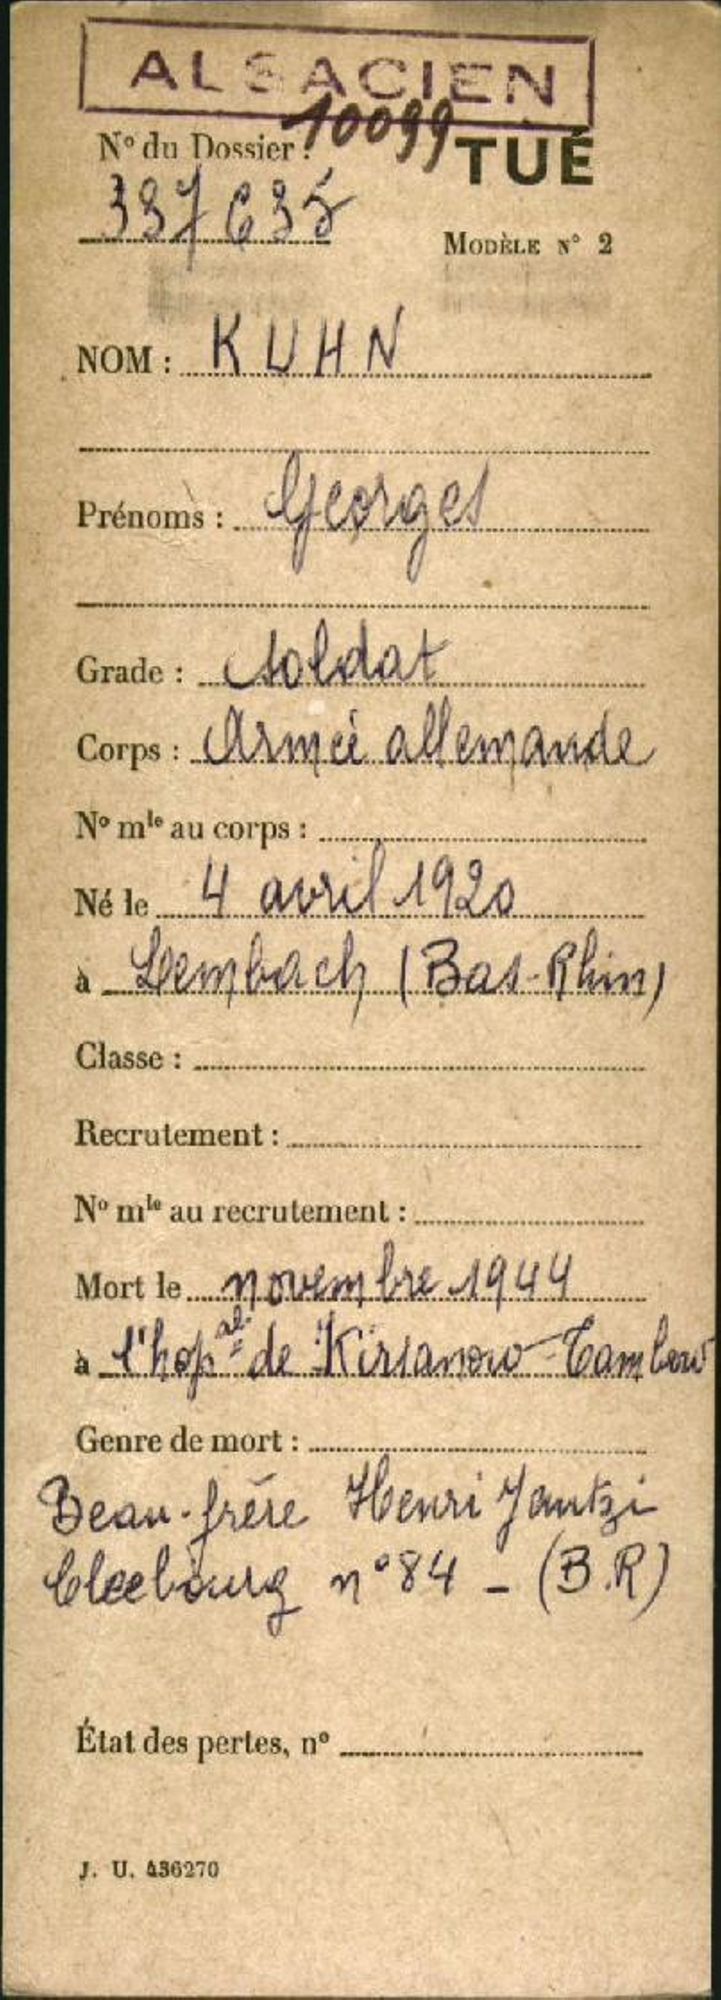 ALSACIEN
10099
N° du Dossier :
TUÉ
337635
MODÈLE N° 2
NOM : KUHN
Prénoms : Georges
Grade : soldat
Corps : Armée allemande
N° mle au corps :
Né le 4 avril 1920
à Lembach (Bas-Rhin)
Classe :
Recrutement :
N° mle au recrutement :
Mort le novembre 1944
à l'hopal de Kirsanow-Tambow
Genre de mort :
Beau-frère Henri Jautzi
Cleebourg n° 84 - (B.R)
État des pertes, n°
J. U. 436270